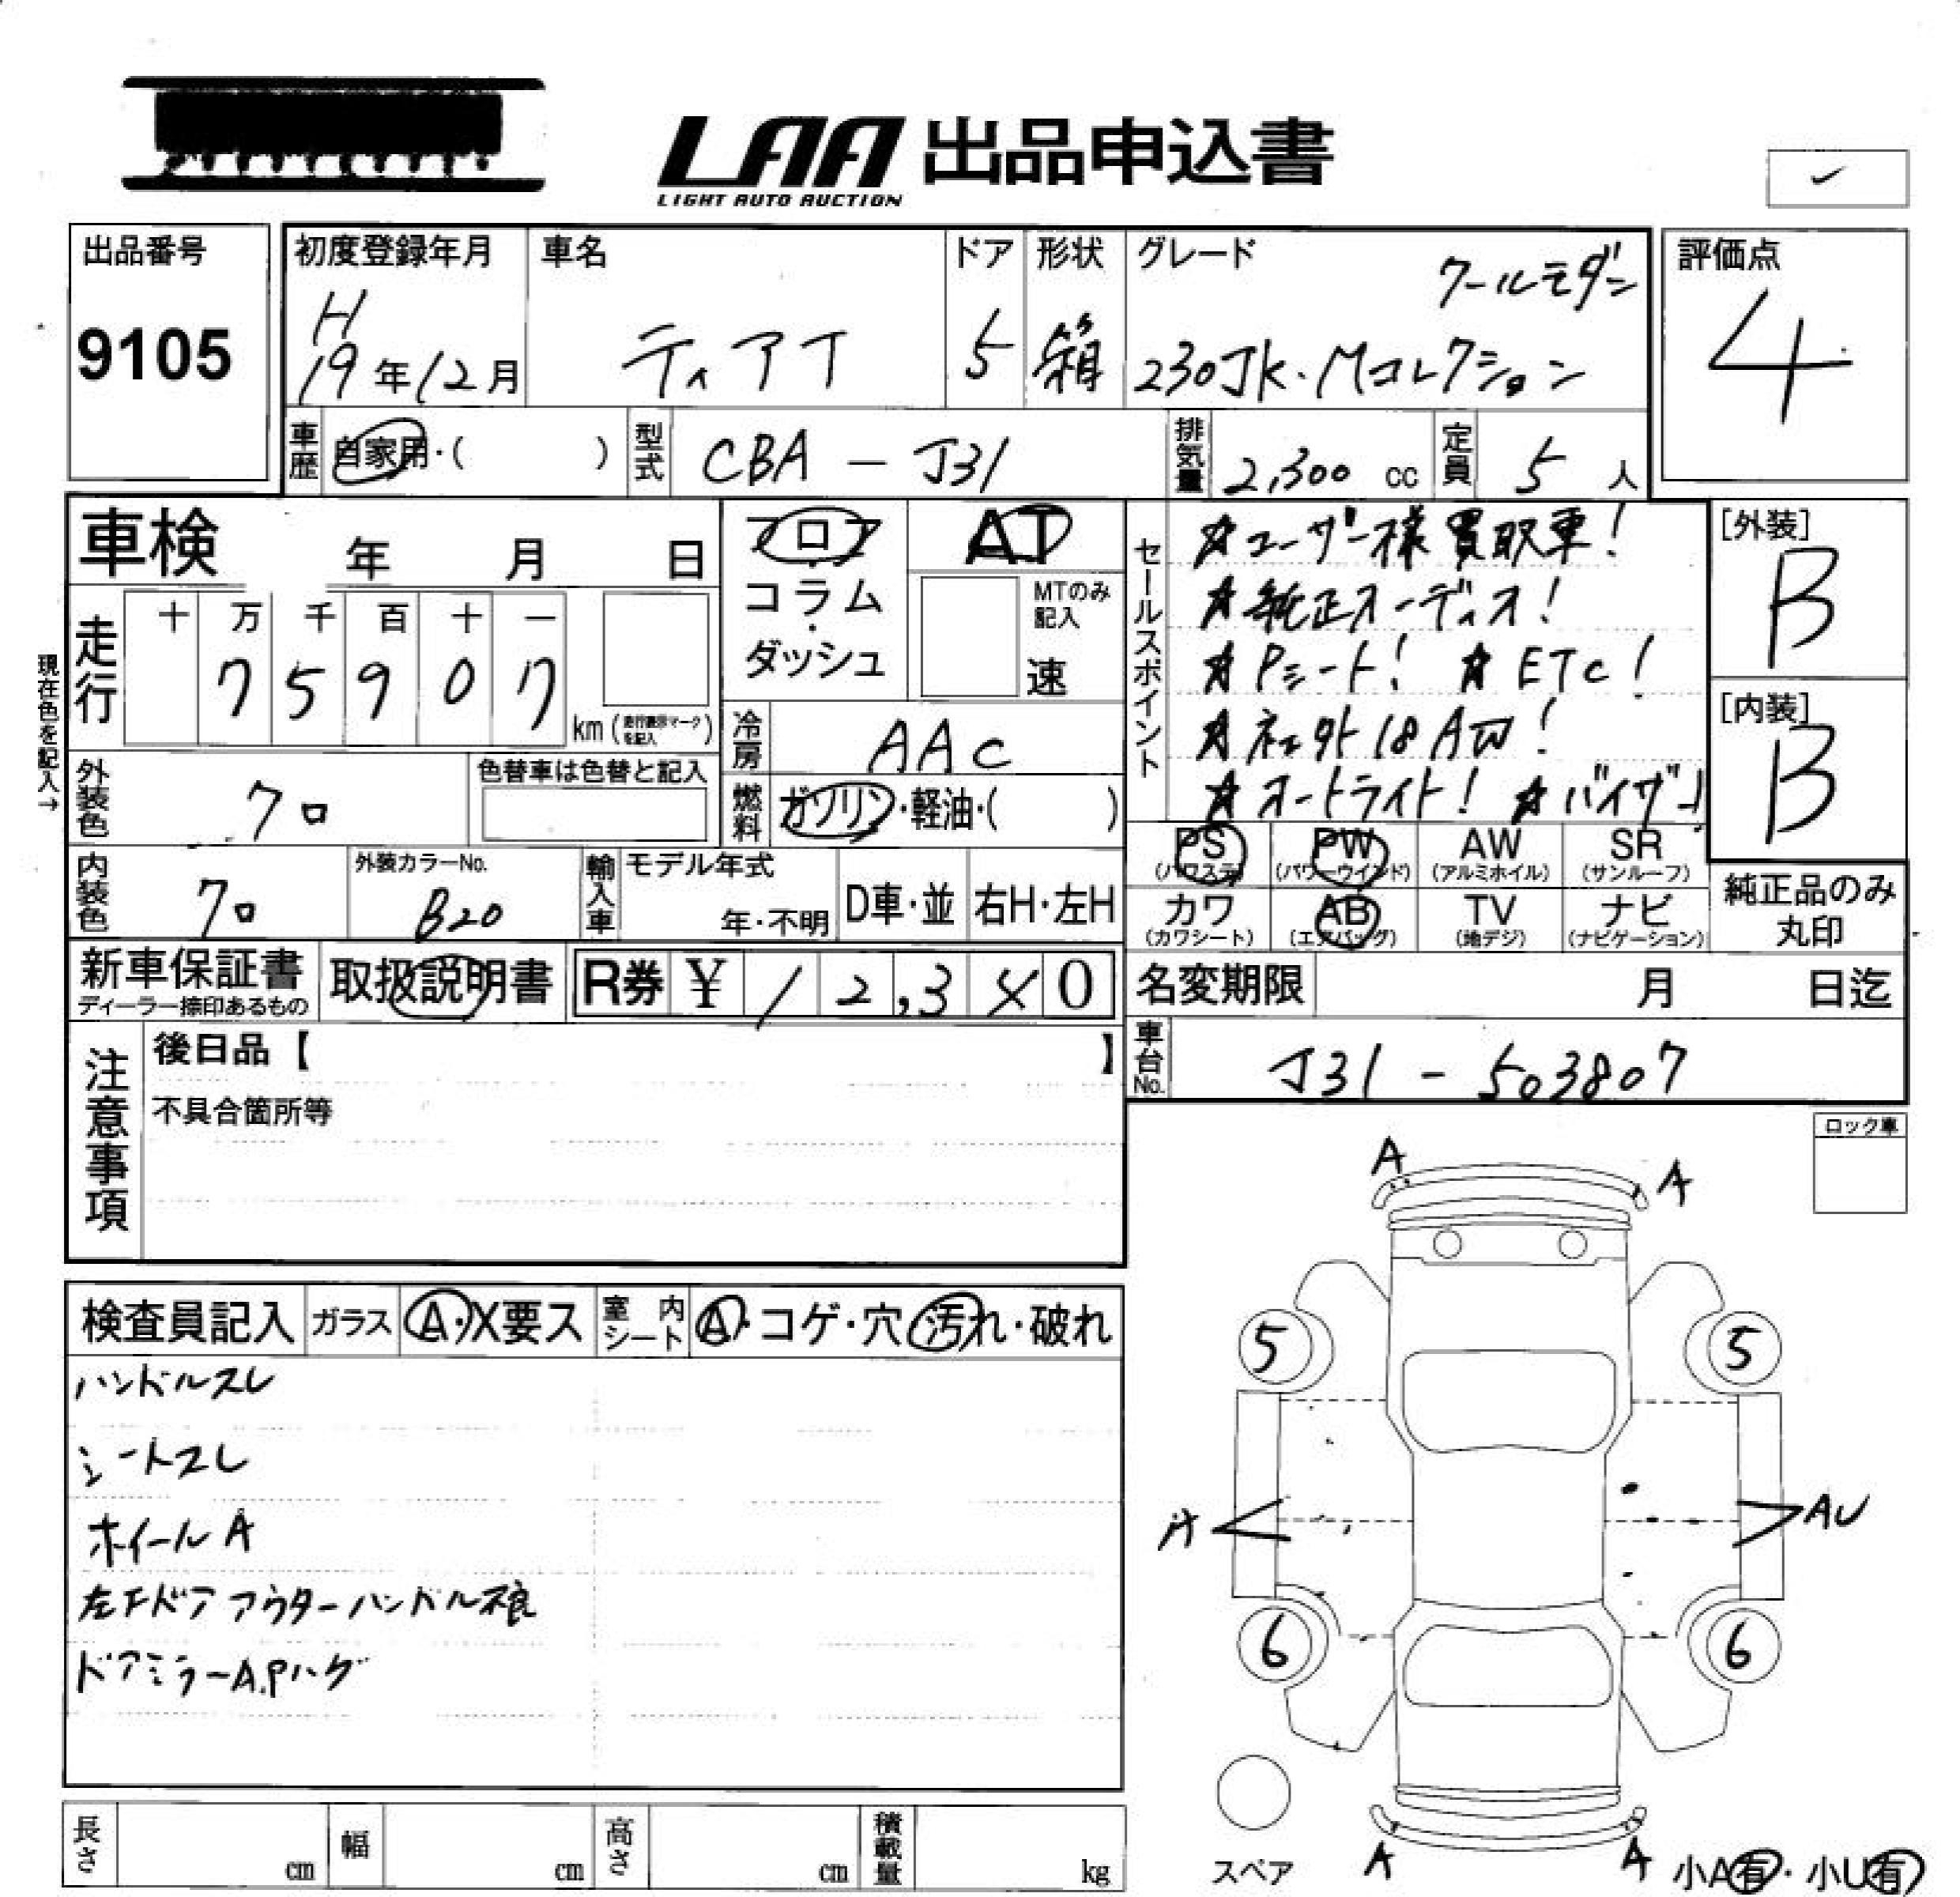 LAA 出品申込書
LIGHT AUTO AUCTION
出品番号
9105
初度登録年月
H
19年12月
車名
ティアナ
ドア
5
形状
箱
グレード
クールモダン
230JK・Mコレクション
評価点
4
車歴
自家用・( )
型式
CBA - J31
排気量
2,300 cc
定員
5 人
車検 年 月 日
フロア
コラム
・
ダッシュ
AT
MTのみ
記入
速
走行
十 万 千 百 十 一
7 5 9 0 7
km (走行表示マークを記入)
現在色を記入→
冷房
AAC
燃料
ガソリン・軽油・( )
外装色
クロ
色替車は色替と記入
内装色
クロ
外装カラーNo.
B20
輸入車
モデル年式
年・不明
D車・並
右H・左H
セールスポイント
★ユーザー様買取車!
★純正オーディオ!
★Pシート! ★ETC!
★社外18AW!
★オートライト! ★バイザー
[外装]
B
[内装]
B
PS
(パワステ)
PW
(パワーウインド)
AW
(アルミホイル)
SR
(サンルーフ)
カワ
(カワシート)
AB
(エアバッグ)
TV
(地デジ)
ナビ
(ナビゲーション)
純正品のみ
丸印
新車保証書
ディーラー捺印あるもの
取扱説明書
R券 ¥ 12,3 0
名変期限 月 日迄
車台No.
J31 - 503807
注意事項
後日品【 】
不具合箇所等
ロック車
検査員記入
ガラス
A・X要ス
室内シート
A・コゲ・穴・汚れ・破れ
ハンドルスレ
シートスレ
ホイールA
左Fドアアウターハンドル不良
ドアミラーA.Pハゲ
A
A
5
5
A
AU
6
6
スペア
A
A
小A有・小U有
長さ cm
幅 cm
高さ cm
積載量 kg